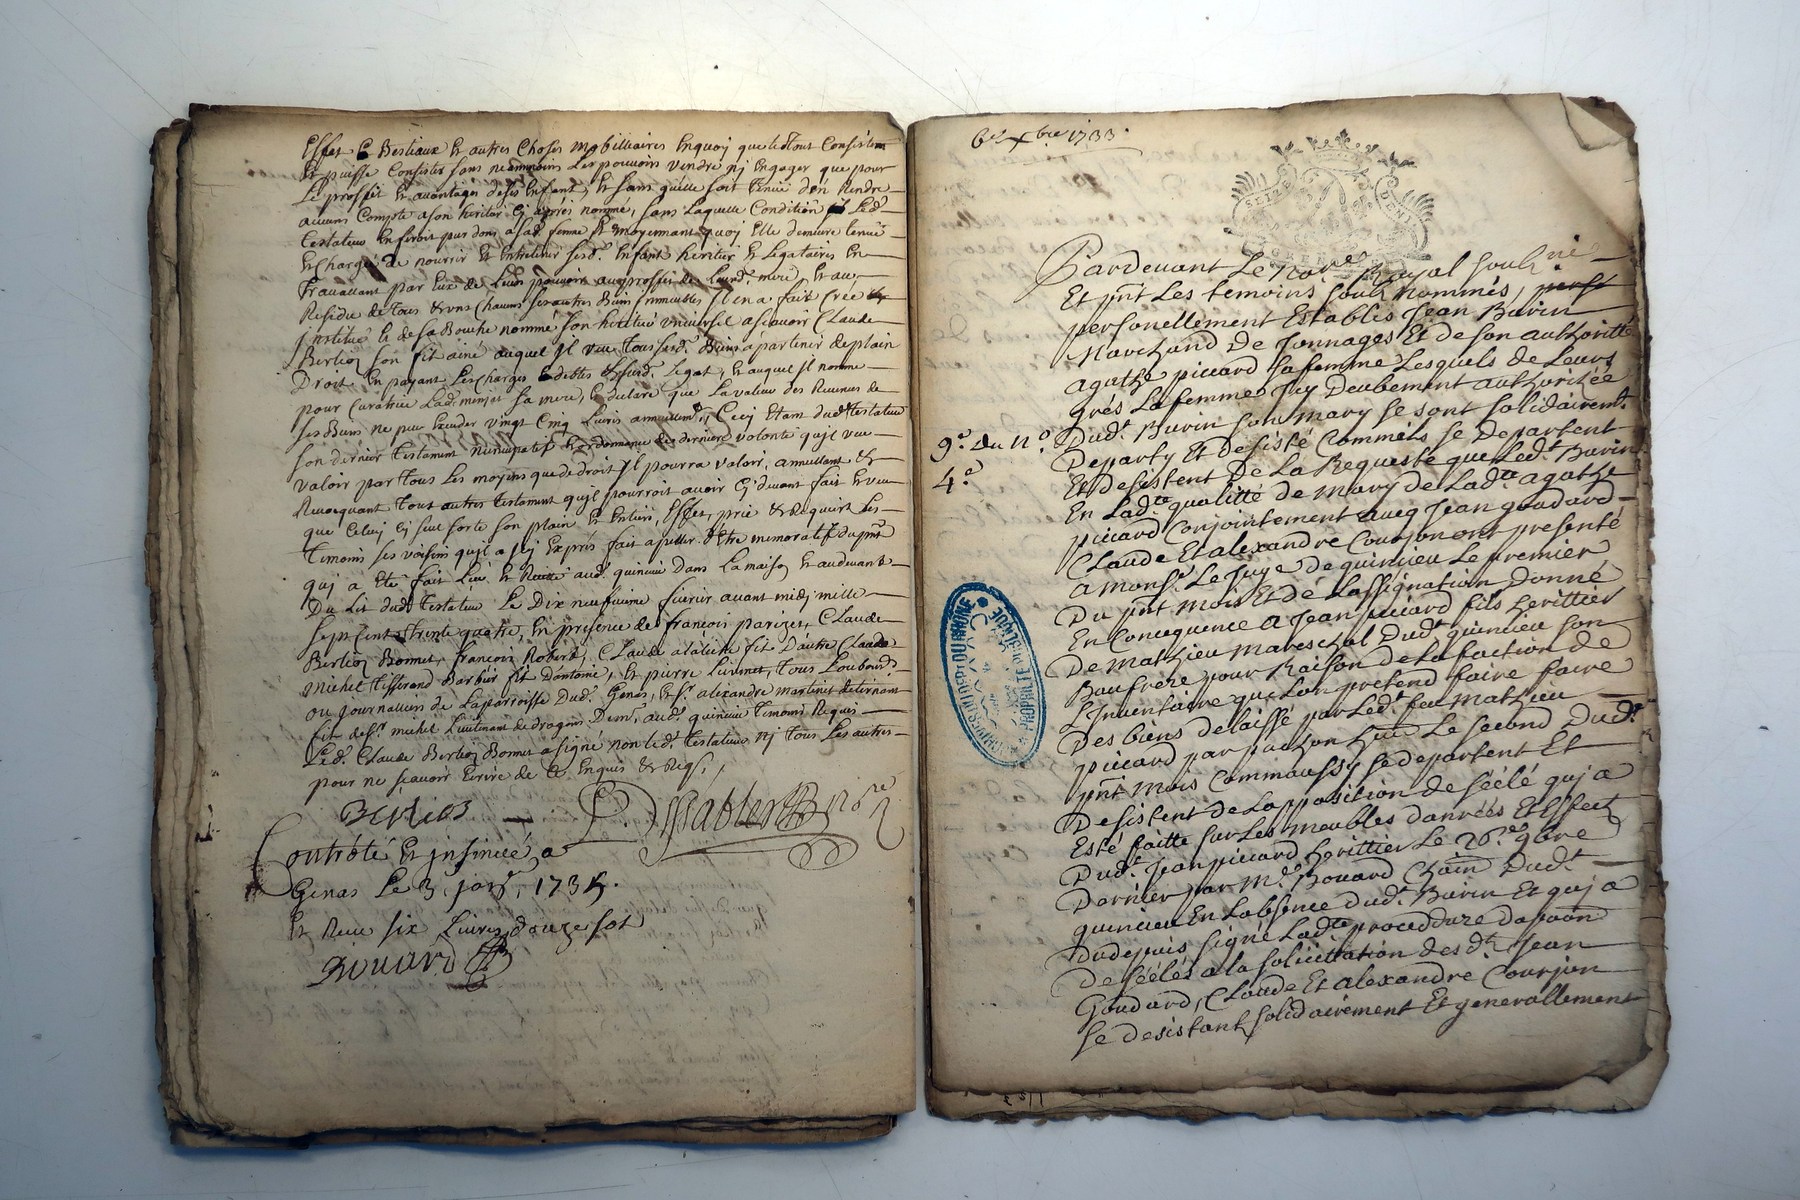 Effet & Bestiaux Et autres Choses mobilliaires Enquoj que le Tout Consistem
Et puisse Consister sans neammoins Les pouvoirs vendre nj Engager que pour
Le proffit Et avantages de ses Enfant, Et sans qu'elle soit Tenue d'en Rendre
aucuns Compte a son heritier Cj après nommé, sans Laquelle Condition Led.
Testateur
pas dons a sad. femme Et moyennant quoj Elle demeure tenue
Et Chargée de nourrir Et Entretenir sesd. Enfant heritier Et Legataires En
Travaillant par Eux de Leurs pouvoir au proffit de Leurd. mere, Et au
Residu de Tous
autres Biens Immeubles Jl en a fait Crée &
Jnstitué & de sa Bouche nommé son heritié universel a scavoir Claude
Berlioz son fit ainé auquel Jl veu Tous sesd. Biens apartenir de plain
Droit En payant Les charges & debtes & susd. Legat, Et auquel Jl nomme
pour Curatrice Lad. sa mere, & declare que La valeur des Revenus de
ses Biens ne peu Exceder vingt Cinq Livres annuellem., Cecj Etant dud. Testateur
son dernier Testament nuncupatif & ordonnance de derniere volonté qujl veu
valoir par Tous Les moyens que de droit Jl pourra valoir, annullant &
Revocquant Tout autres Testament qujl pourroit avoir Cj devant fait Et veu
que Celuj Cj seul sorte son plain Et Entier, Effet, prié & Requis Les
Temoins ses voisins qujl a Jcj Exprès fait apeller d'Etre memoratif du pnt
quj a Eté fait Leu & Recité aud. quincieu Dans La maison Et audevant
Du Lit dud. Testateur Le Dix neufvieme fevrier avant midj mille
sept Cent Trente quatre, En presence de francois parizet, Claude
Berlioz Bonnet, francois Robert, Claude fit D'autre Claude
michel Tisserand Barbier fit d'antoine, Et pierre Tous Laboud.
ou journaliers de La parroisse Dud. Genas, Et s. alexandre martinet
fit de s. michel Lieutenant de dragons Dem. aud. quincieu Temoins Requis
Led. Claude Berlioz Bonnet a signé non led. Testateur nj Tous Les autres
pour ne scavoir Ecrire de Ce Enquis & Req.
Berlioz
Controlé Et jnsinué a
Genas Le 3
Et Receu six Livres douze sot
Rouard
6e Xbre 1733.
GRENOBLE
Pardevant Le Nore Royal soubzné
Et pnt Les temoins soubz nommés,
personellement Establis Jean Buvin
Marchand De Jonnages Et de son authoritté
agathe piccard sa femme Lesquels de Leurs
grés La femme Jcy Deubement authorizée
9e. du n°.
Dudt. Buvin son mary se sont solidairemt.
4e.
Departy Et desisté Comme ils se departent
Et desistent De La Requeste que Ledt. Buvin
En Ladte qualitté de mary de Ladte agathe
piccard Conjointement avecq Jean goudard
Claude Et alexandre Courjon ont presenté
a monsr. Le Juge De quincieu Le premier
Du pnt mois Et de L'assignation Donné
En Concequence a Jean piccard fils herittier
De mathieu mareschal Dudt. quincieu son
Beaufrere pour Raison de La faction de
L'Inventaire que L'on pretend faire faire
Des biens delaissé par Ledt. feu mathieu
piccard par Le second Dudt.
pnt mois Commaussy se departent Et
Desistent de L'opposition de séélé quj a
Esté faitte sur Les meubles danréés Et Effect
Dudt. Jean piccard herittier Le 26e. 9bre
Dernier par Me. Rouard Chain Dudt.
quincieu En L'absence Dudt. Buvin Et quj a
Dudepuis signé Ladte procedure
De séélés a la solicittation desdt. Jean
Goudard, Claude Et alexandre Courjon
se desistant solidairement Et generallement
ARCHIVES DU DEPT DU RHONE
PROPRIETE PUBLIQUE